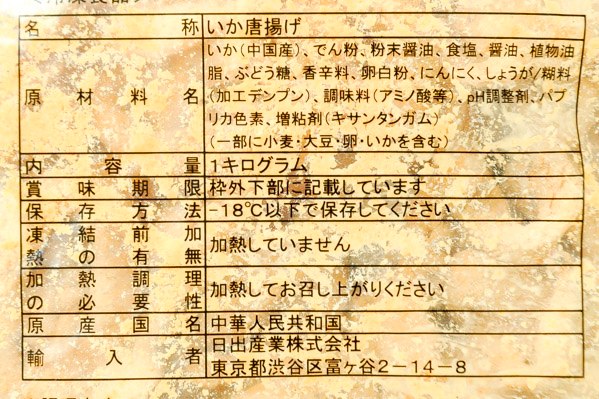 名称 いか唐揚げ
原材料名 いか(中国産)、でん粉、粉末醤油、食塩、醤油、植物油
脂、ぶどう糖、香辛料、卵白粉、にんにく、しょうが/糊料
(加工デンプン)、調味料(アミノ酸等)、pH調整剤、パプ
リカ色素、増粘剤(キサンタンガム)
(一部に小麦・大豆・卵・いかを含む)
内容量 1キログラム
賞味期限 枠外下部に記載しています
保存方法 -18℃以下で保存してください
凍結前加
熱の有無 加熱していません
加熱調理
の必要性 加熱してお召し上がりください
原産国名 中華人民共和国
輸入者 日出産業株式会社
東京都渋谷区富ヶ谷2-14-8